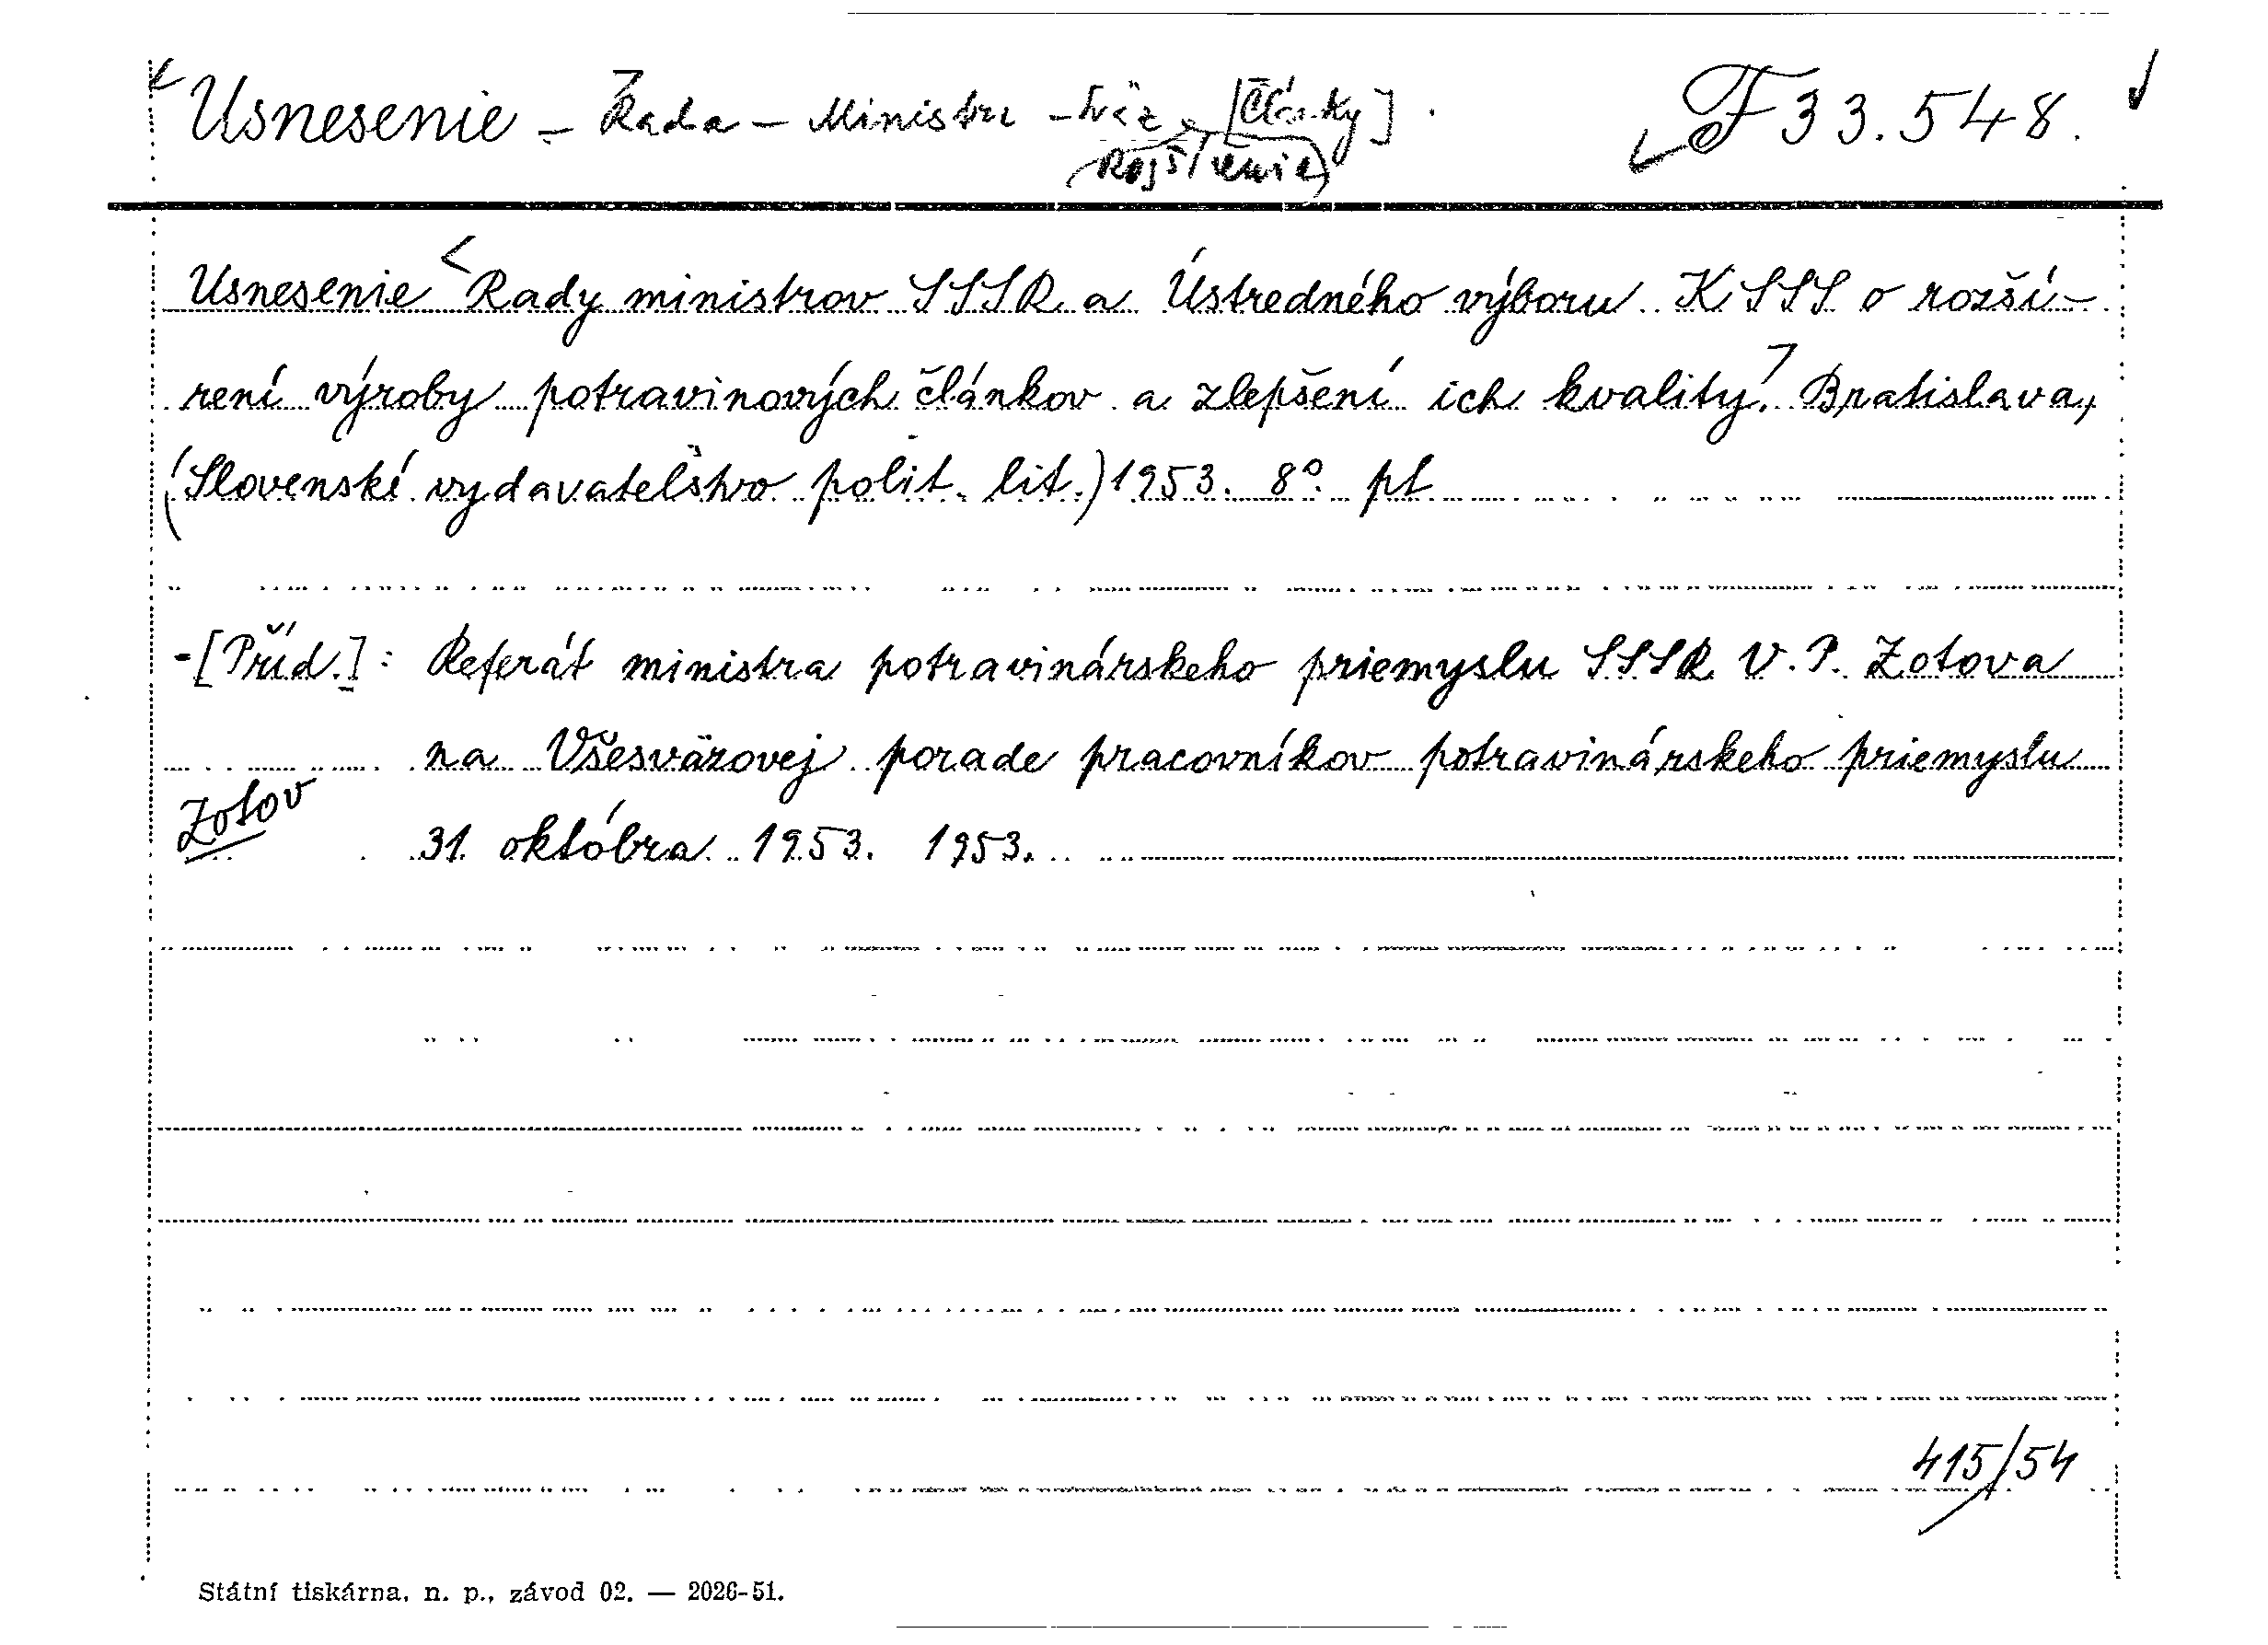 Usnesenie - Rada - Ministru - Sväz [Články]. F 33.548.
Rozšírenie
Usnesenie Rady ministrov SSSR a Ústredného výboru KSSS o rozší-
rení výroby potravinových článkov a zlepšení ich kvality. Bratislava,
(Slovenské vydavatelśtvo polit. lit.) 1953. 8°. pt
-[Příd.]: Referát ministra potravinárskeho priemyslu SSSR V. P. Zotova
na Všesväzovej porade pracovníkov potravinárskeho priemyslu
Zotov 31. októbra 1953. 1953.
415/54
Státní tiskárna, n. p., závod 02. — 2026-51.